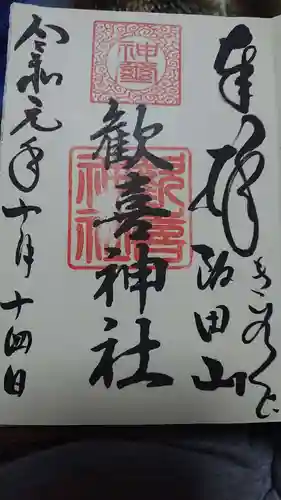 奉拝
阪田山
歓喜神社
令和元年十月十四日
神璽
歓喜神社